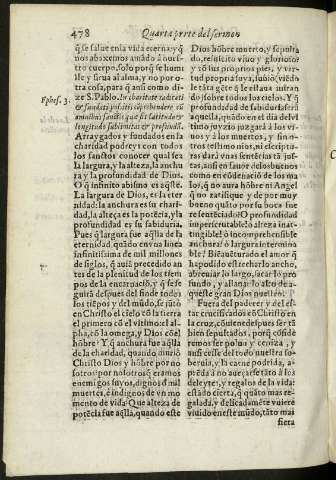 478 Quarta parte del sermon
q̃ se salue enla vida eterna: y q̃
nos abaxemos amãdo ànuestro
cuerpo, solo porq̃ se humi
lle y sirua al alma, y no por o-
tra cosa, para q̃ ansi como di-
ze S. Pablo. In charitate radicati
& fundati possitis cõprehendere cũ
omnibus sanctis quæ sit latitudo &
longitudo sublimitas & profundũ.
Ephes. 3.
Arraygados y fundados en la
charidad podreys con todos
los sanctos conocer qual sea
la largura, y la alteza, la anchu
ra y la profundidad de Dios.
O infinito abismo es aq̃ste.
La largura de Dios, es la eter
nidad: la anchura es su chari-
dad, la alteza es la potẽcia, y la
profundidad es su sabiduria.
Pues q̃ largura fue aq̃lla de la
eternidad quãdo en vna linea
infinitissima de mil millones
de siglos, q̃ auiã precedido an
tes de la plenitud de los tiem
pos de la encarnaciõ, y q̃ se se
guirã despues del finde todos
los tiẽpos y del mũdo, se jũtò
en Christo el cielo cõ la tierra
el primero cõ el vltimo: el al-
pha, cõ la omega, y Dios cõ el
hõbre? Y q̃ anchura fue aq̃lla
de la charidad, quando muriò
Christo Dios y hõbre por no
sotros: por nosotros q̃ eramos
enemigos suyos, dignos d̃ mil
muertes, è indignos de vn mo
mento de vida? Que alteza de
potẽcia fue aq̃lla, quando este
Dios hõbre muerto, y sepulta
do, resuscitò viuo y glorioso?
y cõ sus proprios pies, y vir-
tud propria suya, subiò, (viẽdo
le tãta gẽte q̃ le estaua miran
do) sobre todos los cielos. Y q̃
profundidad de sabiduria se-
rà aquella, quando en el dia del vl
timo juyzio juzgarà à los vi-
uos y à los muertos, y sin o-
tros testimonios, ni el scriptu-
ras darà vnas sentẽcias tã jus-
tas, assi en fauor delos buenos
como en cõdenaciõ de los ma
los, q̃ no aura hõbre ni Angel
que no ratifique y de por muy
bueno q̃nsto por su boca fue
re sentẽciado? O profundidad
imperscrutable! ò alteza inat-
tingible! ò incomprehensible
anchura! ò largura intermina
ble! Biẽauẽturado el amor q̃
ha podido estrechar lo ancho,
abreuiar lo largo, secar lo pro
fundo, y allanar lo alto de a-
q̃ueste gran Dios nuestro.
Fuera del padecer y del es-
tar crucificados cõ Christo en
la cruz, cõuiene despues ser tã
bien sepultados, porq̃ cõside
remos ser poluo y ceniza, y
ansi cesse del todo nuestra so-
beruia, y la carne podrida, a-
prẽda à no auezarse tãto à los
deleytes, y regalos de la vida:
estãdo cierta, q̃ quãto mas re-
galada, y delicadamẽte vuiere
viuido en este mũdo, tãto mas
fiera